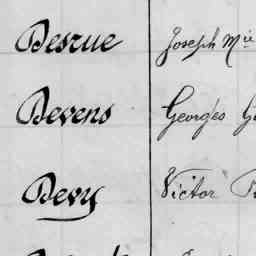 Desrue Joseph Mie
Devens Georges
Devy Victor